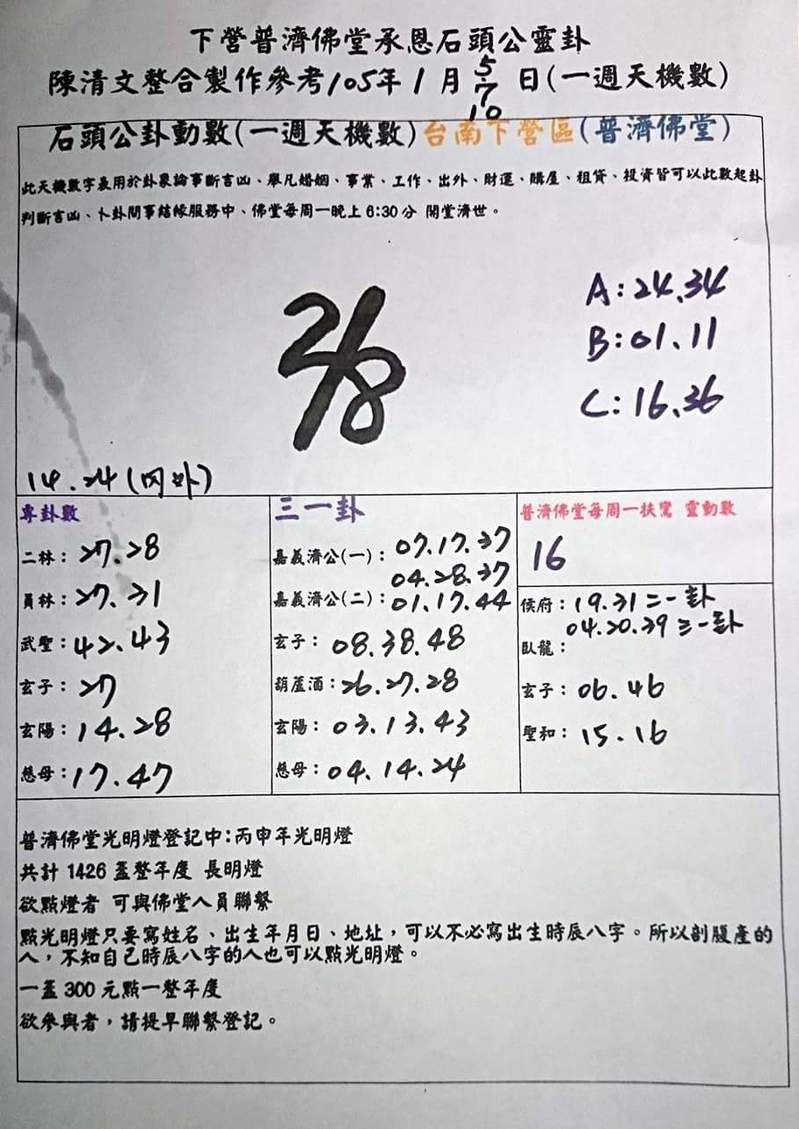 下營普濟佛堂承恩石頭公靈卦
陳清文整合製作參考105年1月5 7 10日(一週天機數)
石頭公卦動數(一週天機數)台南下營區(普濟佛堂)
此天機數字表用於卦象論事斷吉凶、舉凡婚姻、事業、工作、出外、財運、購屋、租賃、投資皆可以此數起卦
判斷吉凶、卜卦問事結緣服務中、佛堂每周一晚上6:30分 開堂濟世。
A:24.34
B:01.11
C:16.36
28
14.24(內外)
專卦數
二林:27.28
員林:27.31
武聖:42.43
玄子:27
玄陽:14.28
慈母:17.47
三一卦
嘉義濟公(一):07.17.37
04.28.37
嘉義濟公(二):01.17.44
玄子:08.38.48
葫蘆酒:26.27.28
玄陽:03.13.43
慈母:04.14.24
普濟佛堂每周一扶鸞 靈動數
16
侯府:19.31二一卦
04.20.39三一卦
臥龍:
玄子:06.46
聖和:15.16
普濟佛堂光明燈登記中:丙申年光明燈
共計1426盞整年度 長明燈
欲點燈者 可與佛堂人員聯繫
點光明燈只要寫姓名、出生年月日、地址,可以不必寫出生時辰八字。所以剖腹產的
人,不知自己時辰八字的人也可以點光明燈。
一盞300元點一整年度
欲參與者,請提早聯繫登記。